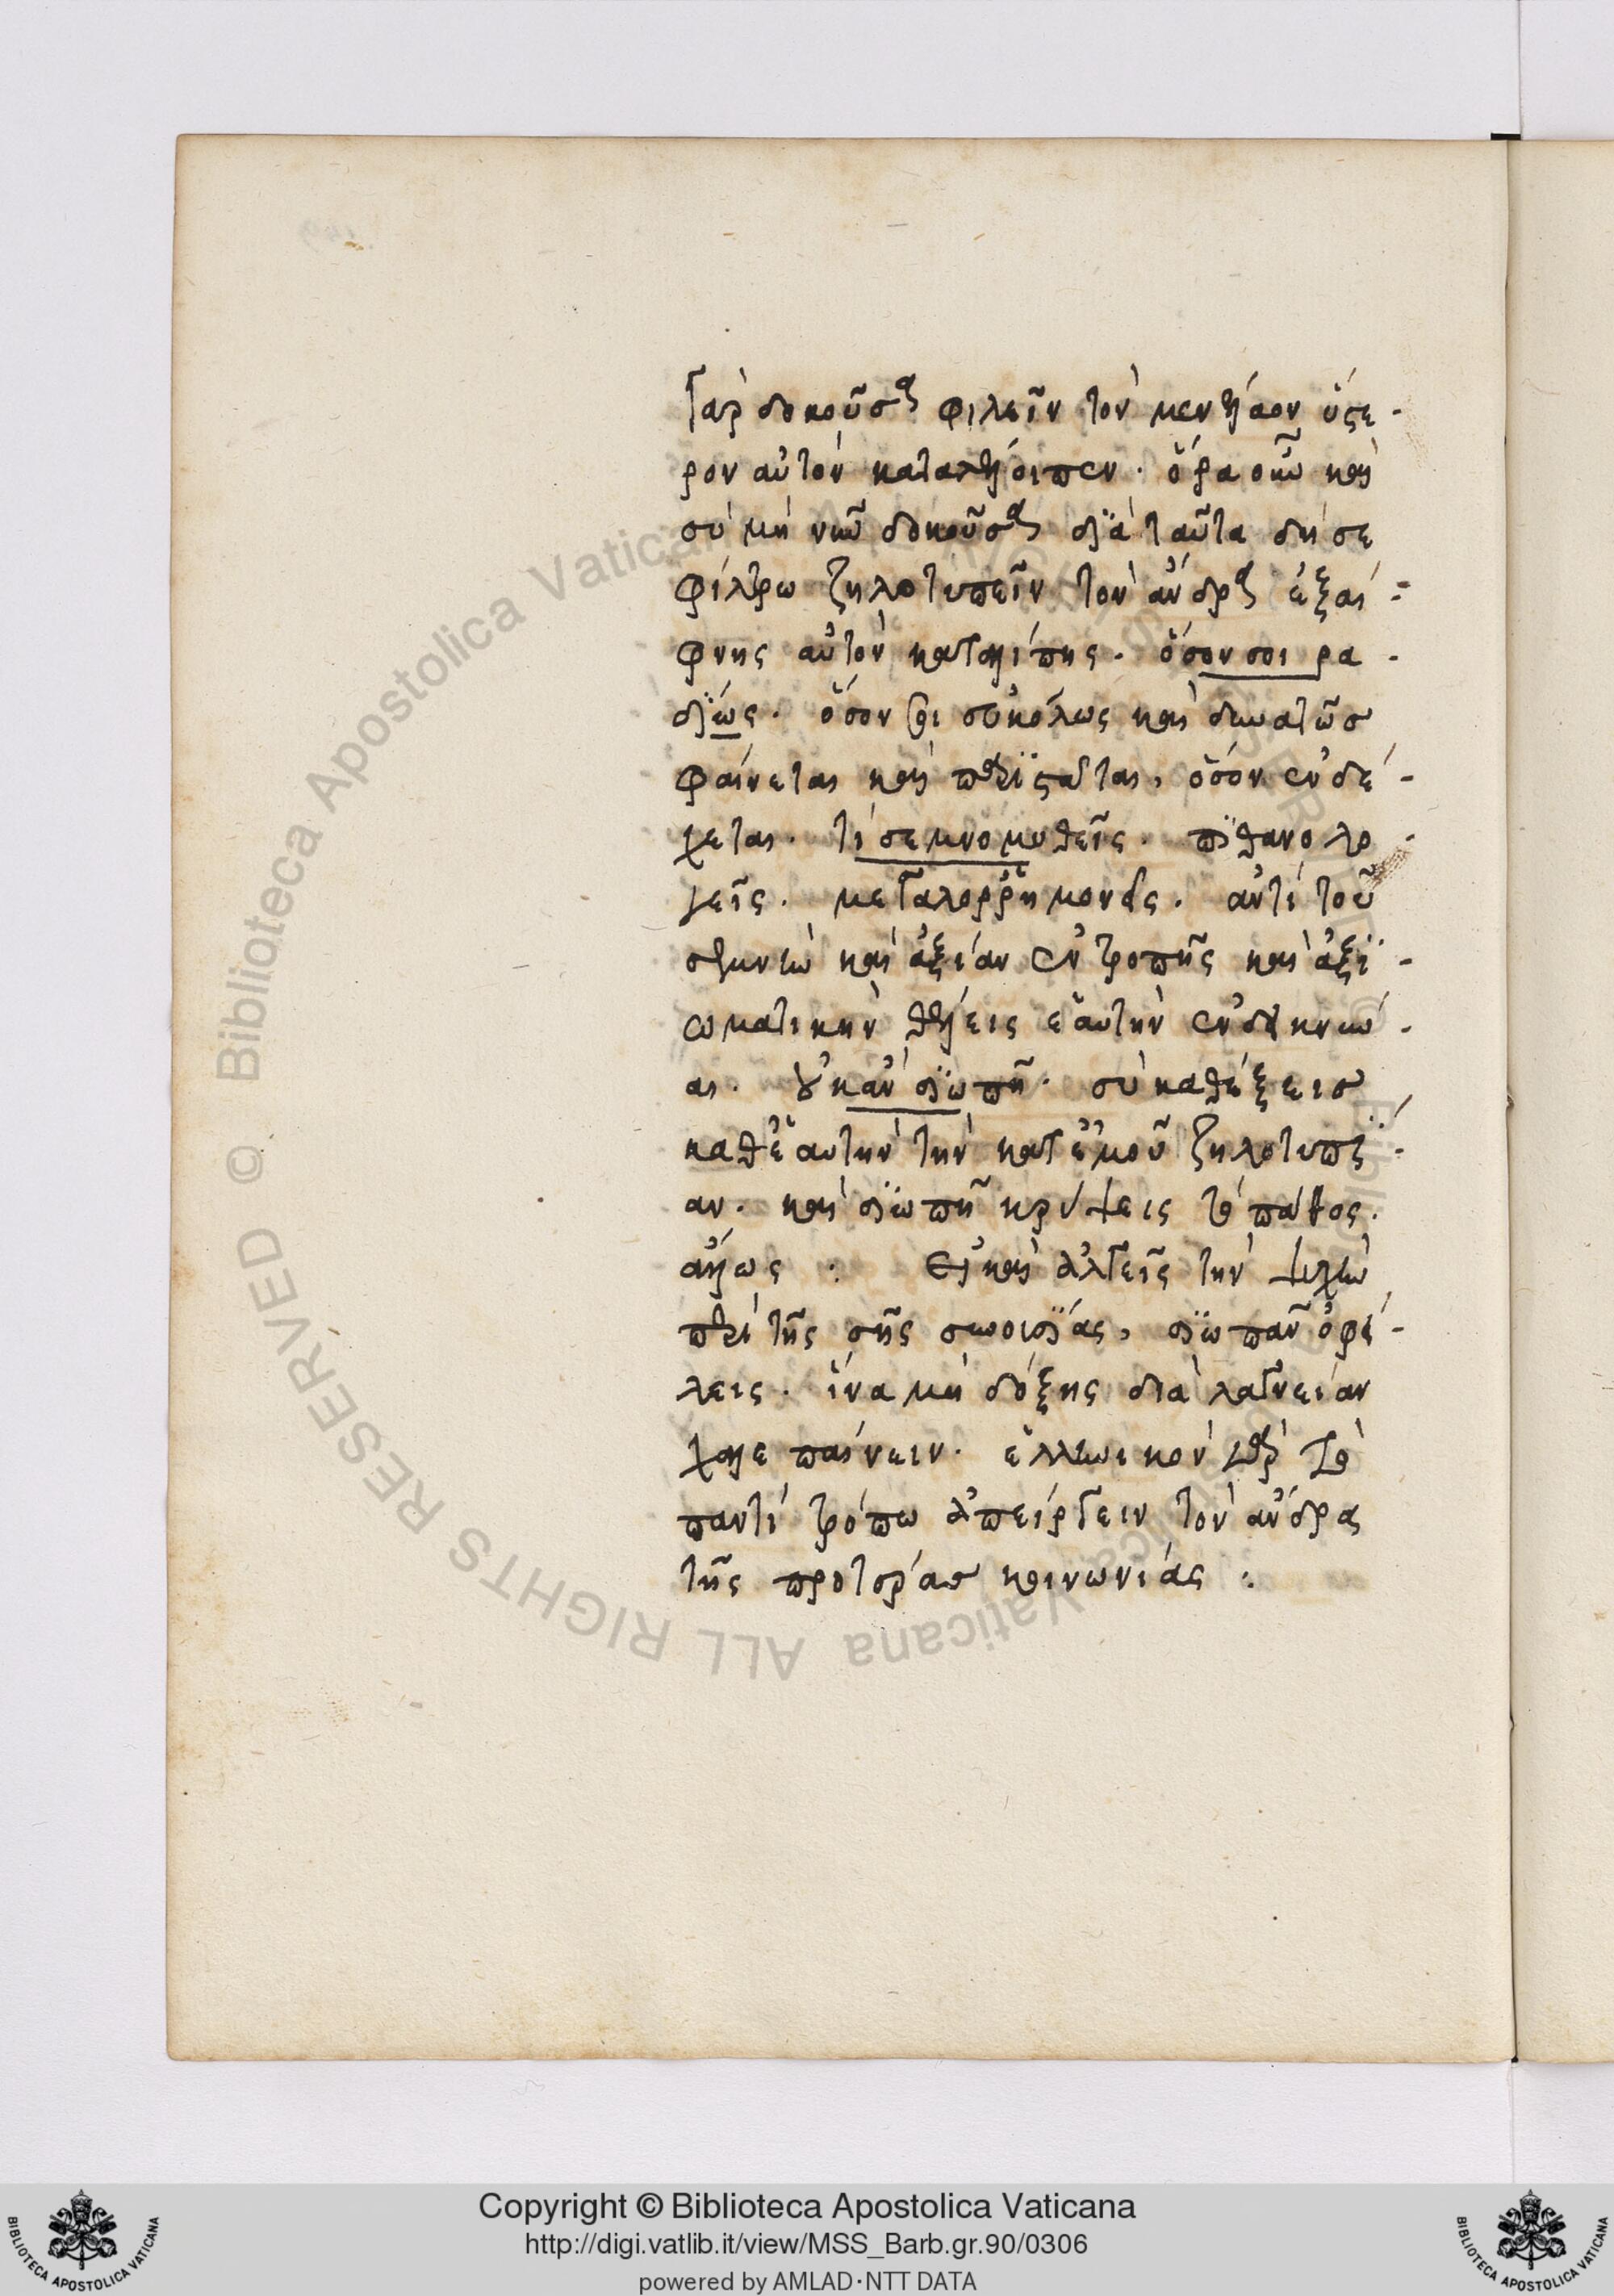 γὰρ δοκοῦσα φιλεῖν τὸν μενέλαον ὕστε-
ρον αὐτὸν καταλέλοιπεν. ὅρα οὖν καὶ
σὺ μὴ νῦν δοκοῦσα διὰ ταῦτα δή σε
φίλτρω ζηλοτυπεῖν τὸν ἄνδρα ἐξαί-
φνης αὐτὸν καταλίπης. ὅσον σοι ρα-
δίως. ὅσον σοι εὐκόλως καὶ δυνατῶς
φαίνεται καὶ περιΐσταται, ὅσον ἐνδέ-
χεται. τί σεμνομυθεῖς. πιθανολο-
γεῖς. μεγαλορρημονεῖς. ἀντὶ τοῦ
σεμνὴν καὶ ἀξίαν ἐντροπῆς καὶ ἀξι-
ωματικὴν θέλεις ἑαυτὴν ἐνδείκνυσ-
αι. οὐκ ἂν σιωπῆ. σὺ καθέξεις
καθ' ἑαυτὴν τὴν κατ' ἐμοῦ ζηλοτυπί-
αν. καὶ σιωπῆ κρύψεις τὸ πάθος.
ἄλλως : Εἰ καὶ ἀλγεῖς τὴν ψυχὴν
περὶ τῆς σῆς συνοισίας, σιωπᾶν ὀφεί-
λεις. ἵνα μὴ δόξης διὰ λαγνείαν
χαλεπαίνειν. ἑλληνικὸν γὰρ τὸ
παντὶ τρόπω ἀπείργειν τὸν ἄνδρα
τῆς προτέρας κοινωνίας :
Copyright © Biblioteca Apostolica Vaticana
http://digi.vatlib.it/view/MSS_Barb.gr.90/0306
powered by AMLAD·NTT DATA
BIBLIOTECA APOSTOLICA VATICANA
BIBLIOTECA APOSTOLICA VATICANA
© Biblioteca Apostolica Vaticana ALL RIGHTS RESERVED